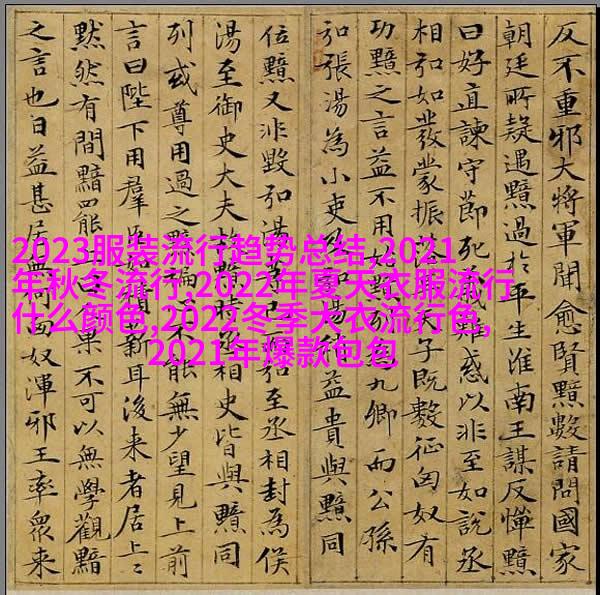 反不重邪大將軍聞愈賢黯數請問國家
朝廷所疑遇黯過於平生淮南王謀反憚黯
曰好直諫守節死義難惑以非至如說丞
相弘如發蒙振天子既數征匈奴有
功黯之言益不用始黯列九卿而公孫
弘張湯為小吏及弘湯稍益貴與黯同
位黯又非毀弘湯等已弘至丞相封為侯
湯至御史大夫故黯時丞相史皆與黯同
列或尊用過之黯褊心不能無少望見上前
言曰陛下用羣臣如積薪耳後來者居上上
默然有間黯罷上曰人果不可以無學觀黯
之言也日益甚居無何匈奴渾邪王率眾來
2023服装流行趋势总结,2021
年秋冬流行,2022年夏天衣服流行
什么颜色,2022冬季大衣流行色,
2021年爆款包包